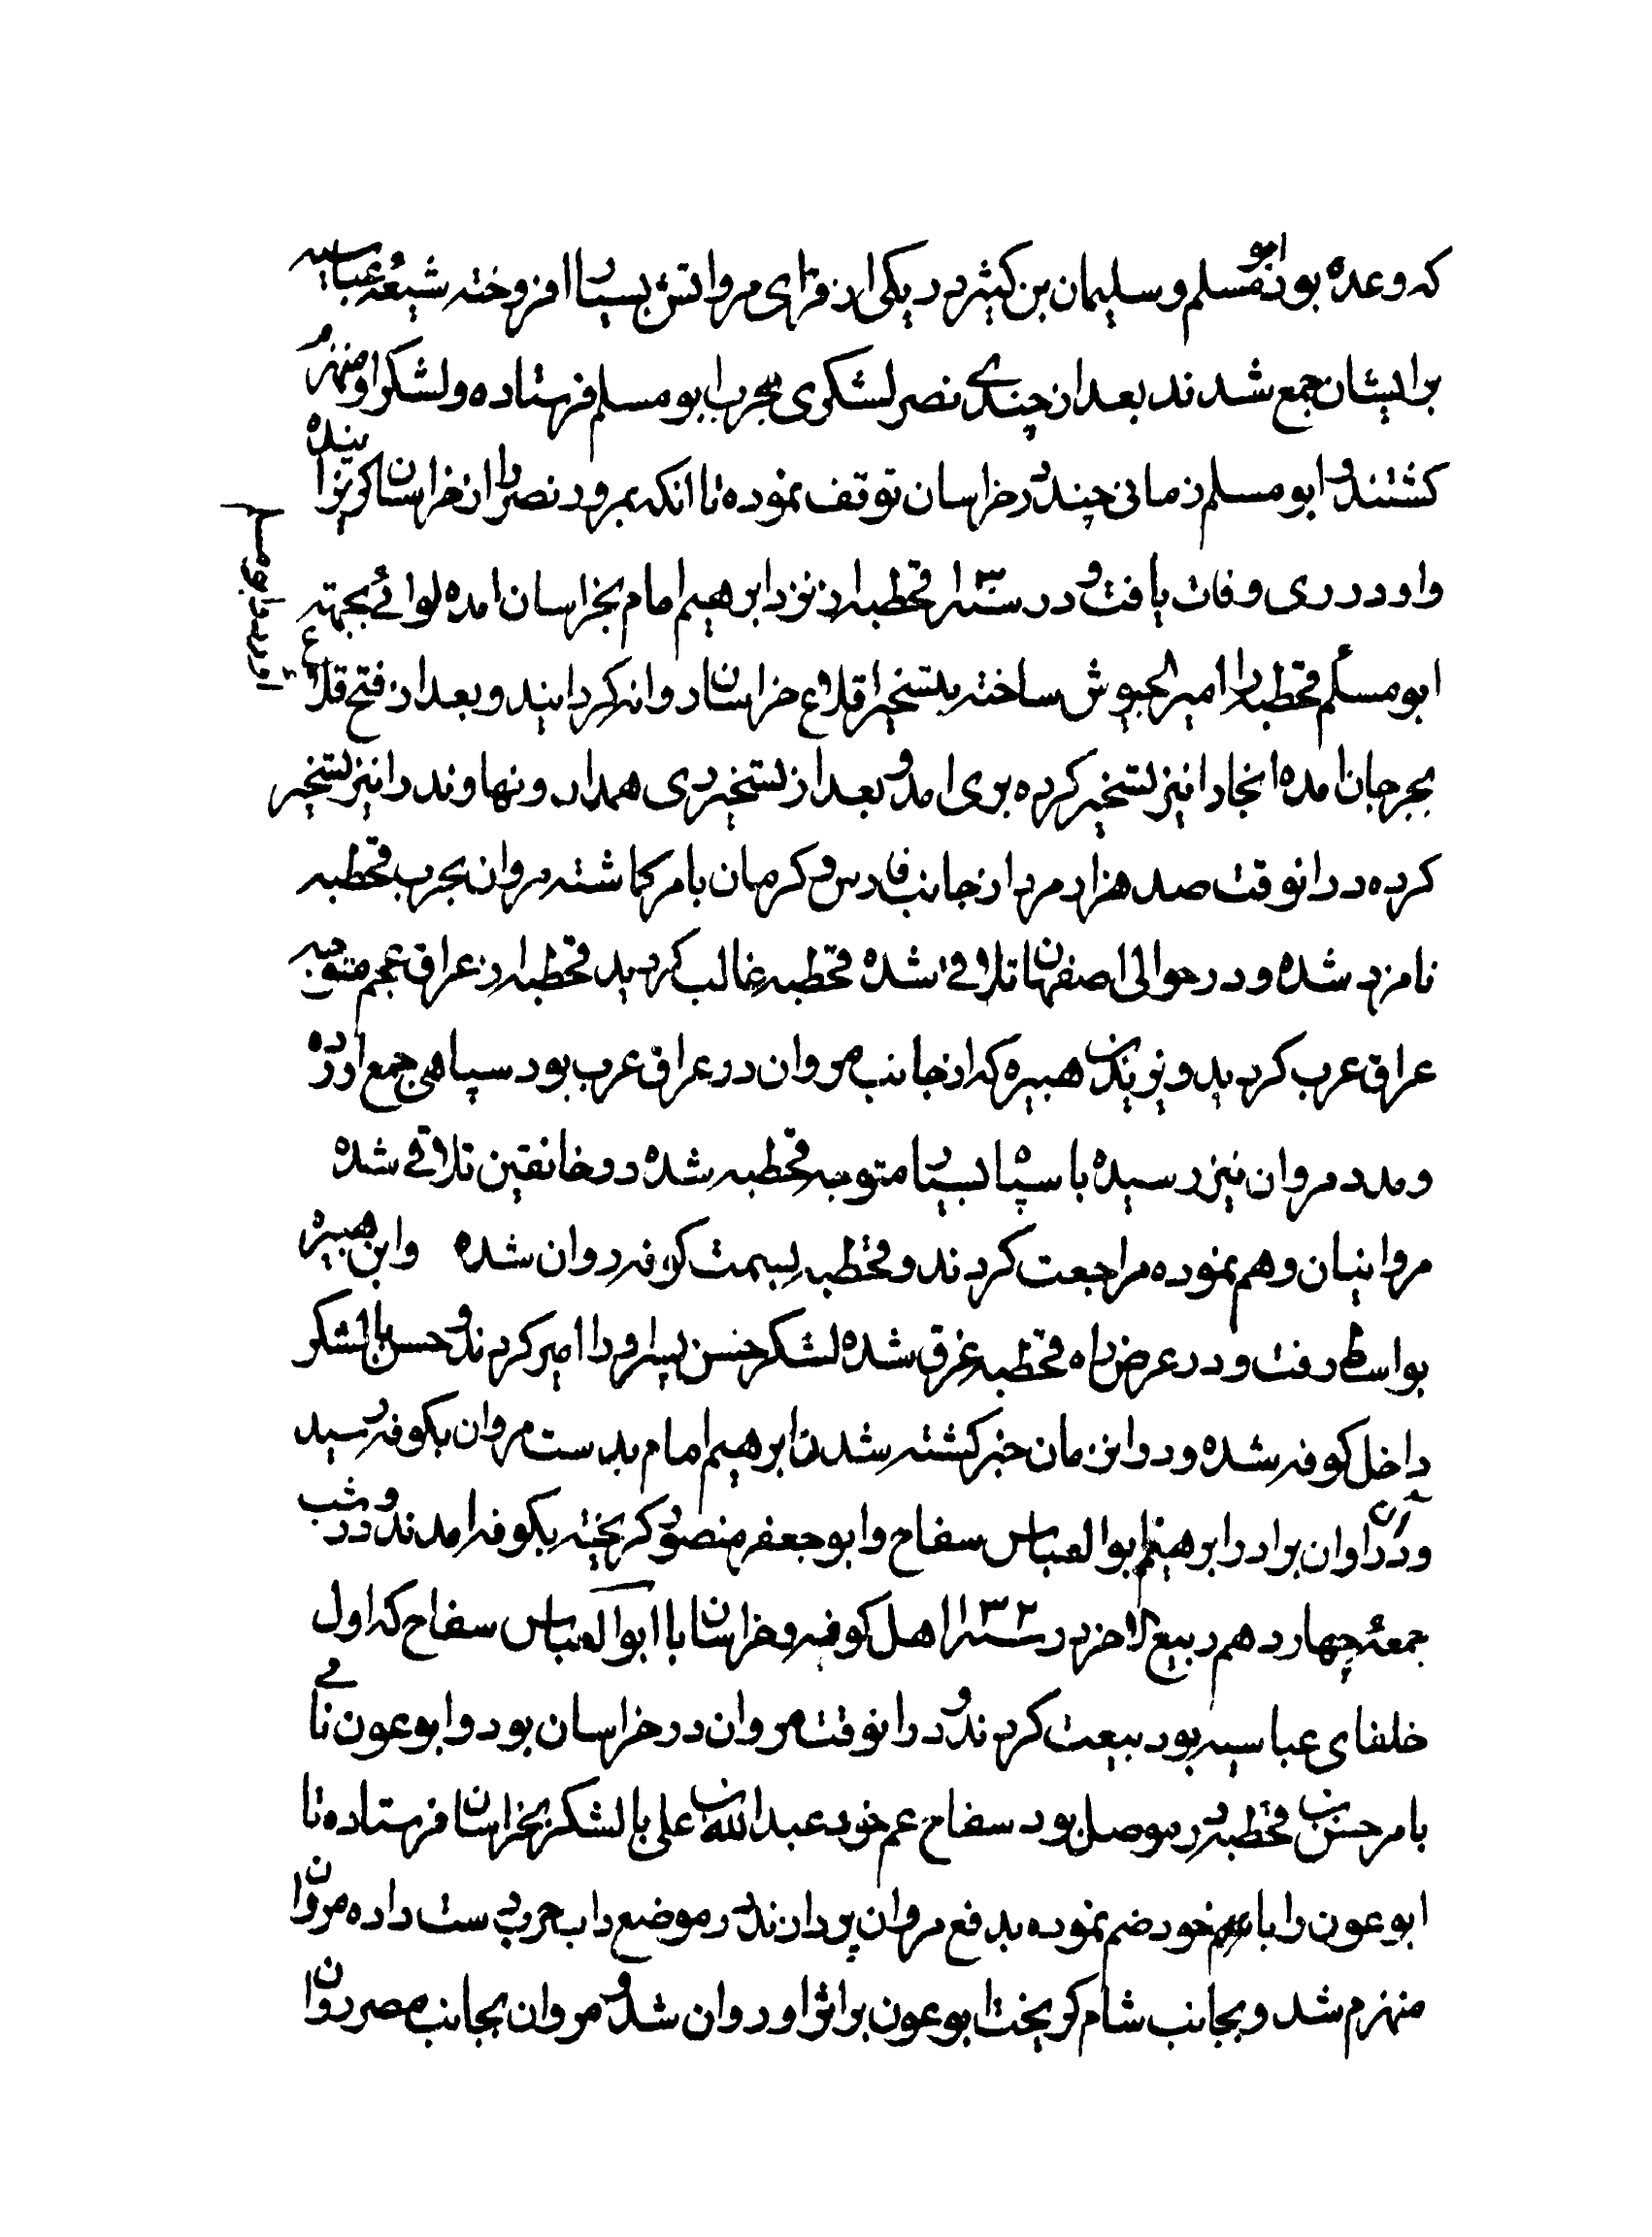 که وعده بود ابو مسلم و سلیمان بن کثیر در یکی از قرای مرو اتش بسیار افروخته شیعه عباسیه
بر ایشان جمع شدند بعد از چندی نصر لشکری بحرب ابو مسلم فرستاده و لشکر او منهزم
کشتند و ابو مسلم زمانی چند در خراسان توقف نموده تا انکه بمرو در نصر را از خراسان کریزانیده
و او در ری وفات یافت و در سنه ۱۳۰ قحطبه از نزد ابرهیم امام بخراسان امده لوائے بجهته
ابو مسلم قحطبه را امیر الجیوش ساخته بتسخیر قلاع خراسان روانه کردانید و بعد از فتح قلاع
بجرجان امده انجا را نیز تسخیر کرده بری امد و بعد از تسخیر ری همدان و نهاوند را نیز تسخیر
کرده در انوقت صد هزار مرد از جانب فارس و کرمان بامر کماشته مروان بحرب قحطبه
نامزد شده و در حوالی اصفهان تلاقی شده قحطبه غالب کردید قحطبه از عراق عجم متوجه
عراق عرب کردید و یزید بن هبیره که از جانب مروان در عراق عرب بود سپاهی جمع اورده
و مدد مروان نیز رسیده با سپاه بسیار متوجه قحطبه شده در خانقین تلاقی شده
مروانیان وهم نموده مراجعت کردند و قحطبه بسمت کوفه روان شده وابن هبیره
بواسط رفت و در عرض راه قحطبه غرق شده لشکر حسن پسر او را امیر کردند و حسن با لشکر
داخل کوفه شده و در این زمان خبر کشته شدن ابرهیم امام بدست مروان بکوفه رسید
و در ان اوان برادر ابرهیم ابو العباس سفاح وابو جعفر منصور کریخته بکوفه امدند و در شب
جمعه چهاردهم ربیع الاخر در سنه ۱۳۲ اهل کوفه و خراسان با ابو العباس سفاح که اول
خلفای عباسیه بود بیعت کردند و در انوقت مروان در خراسان بود و ابو عون نامی
بامر حسن بن قحطبه در موصل بود سفاح عم خود عبد الله بن علی با لشکر بخراسان فرستاده تا
ابو عون را با خود ضم نموده بدفع مروان پردازند در موضع زاب حرب دست داده مروان
منهزم شد و بجانب شام کریخت ابو عون بر اثر او روان شد و مروان بجانب مصر روان